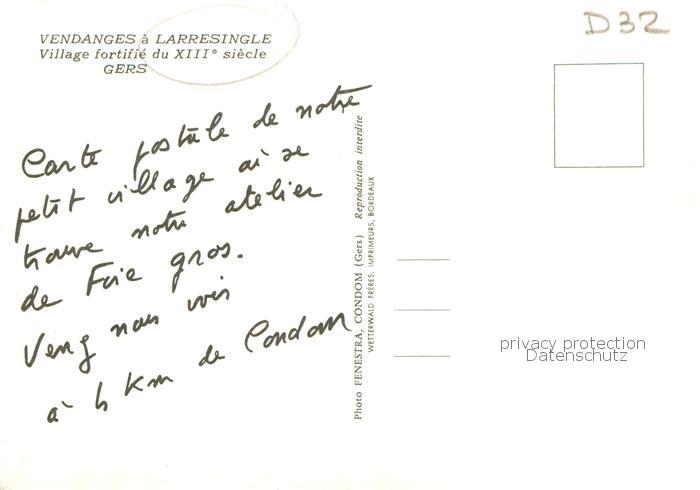 D32
VENDANGES à LARRESINGLE
Village fortifié du XIII° siècle
GERS
Carte postale de notre
petit village où se
trouve notre atelier
de Foie gras.
Venez nous voir
à 4 Km de Condom
Photo FENESTRA, CONDOM (Gers) Reproduction interdite
WETTERWALD FRÈRES, IMPRIMEURS, BORDEAUX
privacy protection
Datenschutz